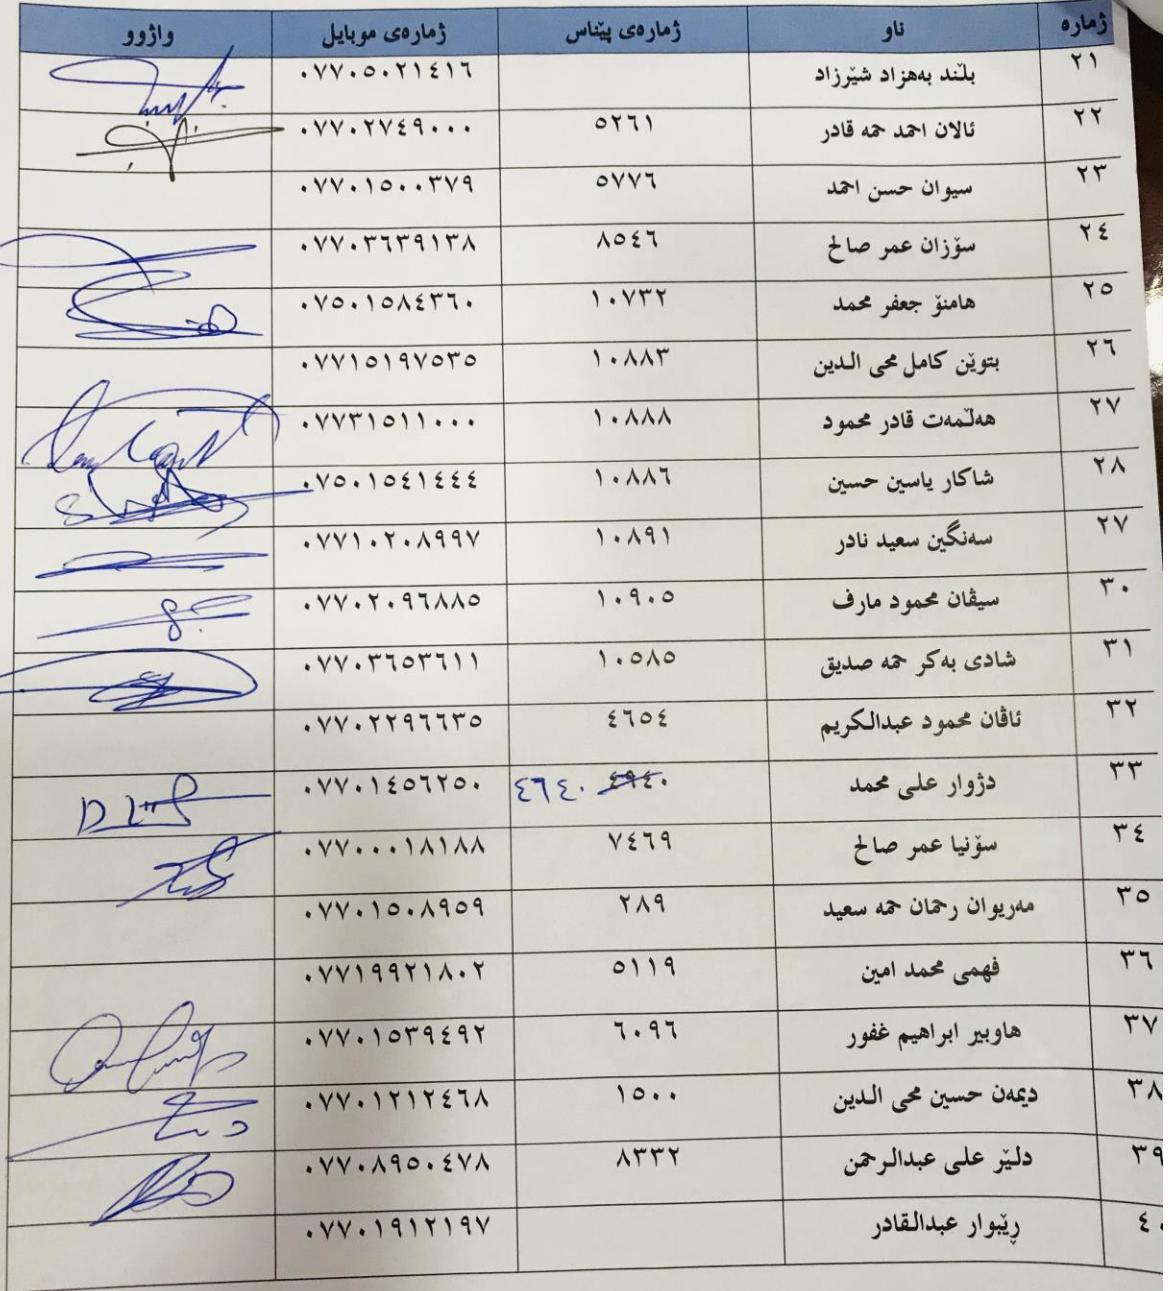 ژمارە ناو ژمارەی پێناس ژمارەی موبایل واژوو
٢١ بڵند بەهزاد شێرزاد ٠٧٧٠٥٠٢١٤١٦
٢٢ ئالان احمد حمه قادر ٥٢٦١ ٠٧٧٠٢٧٤٩٠٠٠
٢٣ سیوان حسن احمد ٥٧٧٦ ٠٧٧٠١٥٠٠٣٧٩
٢٤ سۆزان عمر صالح ٨٥٤٦ ٠٧٧٠٣٦٣٩١٣٨
٢٥ هامنۆ جعفر محمد ١٠٧٣٢ ٠٧٥٠١٥٨٤٣٦٠
٢٦ بتوێن کامل محی الدین ١٠٨٨٣ ٠٧٧١٥١٩٧٥٣٥
٢٧ هەڵمەت قادر محمود ١٠٨٨٨ ٠٧٧٣١٥١١٠٠٠
٢٨ شاکار یاسین حسین ١٠٨٨٦ ٠٧٥٠١٥٤١٤٤٤
٢٧ سەنگین سعید نادر ١٠٨٩١ ٠٧٧١٠٢٠٨٩٩٧
٣٠ سیڤان محمود مارف ١٠٩٠٥ ٠٧٧٠٢٠٩٦٨٨٥
٣١ شادی بەکر حمه صدیق ١٠٥٨٥ ٠٧٧٠٣٦٥٣٦١١
٣٢ ئاڤان محمود عبدالکریم ٤٦٥٤ ٠٧٧٠٢٢٩٦٦٣٥
٣٣ دژوار علی محمد ٤٩٤٠ ٤٦٤٠ ٠٧٧٠١٤٥٦٢٥٠
٣٤ سۆنیا عمر صالح ٧٤٦٩ ٠٧٧٠٠٠١٨١٨٨
٣٥ مەریوان رحمان حمه سعید ٢٨٩ ٠٧٧٠١٥٠٨٩٥٩
٣٦ فهمی محمد امین ٥١١٩ ٠٧٧١٩٩٢١٨٠٢
٣٧ هاوبیر ابراهیم غفور ٦٠٩٦ ٠٧٧٠١٥٣٩٤٩٢
٣٨ دیمەن حسین محی الدین ١٥٠٠ ٠٧٧٠١٢١٢٤٦٨
٣٩ دلێر علی عبدالرحمن ٨٣٣٢ ٠٧٧٠٨٩٥٠٤٧٨
٤٠ ڕێبوار عبدالقادر ٠٧٧٠١٩١٢١٩٧